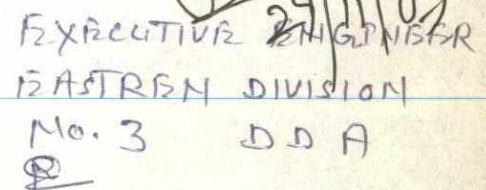 EXECUTIVE ENGINEER
EASTREN DIVISION
No. 3 DDA